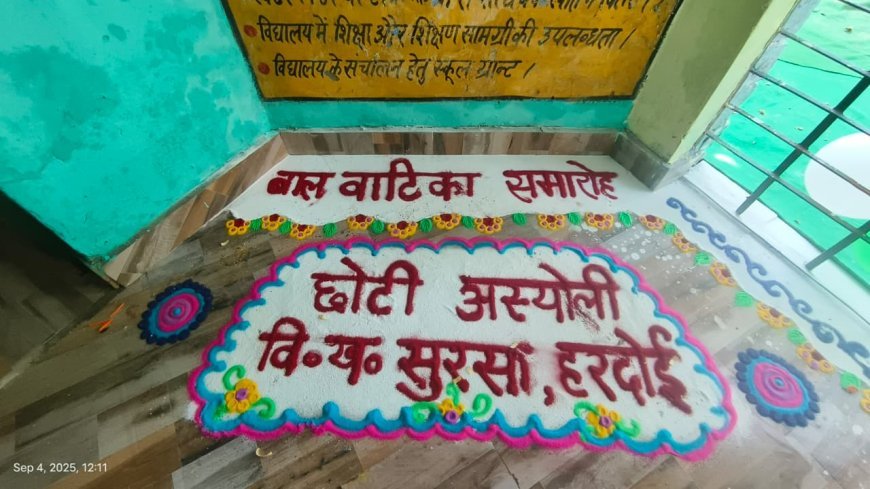 विद्यालय में शिक्षा और शिक्षण सामग्री की उपलब्धता ।
विद्यालय के संचालन हेतु स्कूल ग्रान्ट ।
बाल वाटिका समारोह
छोटी अस्योली
वि॰ख॰ सुरसा, हरदोई
Sep 4, 2025, 12:11